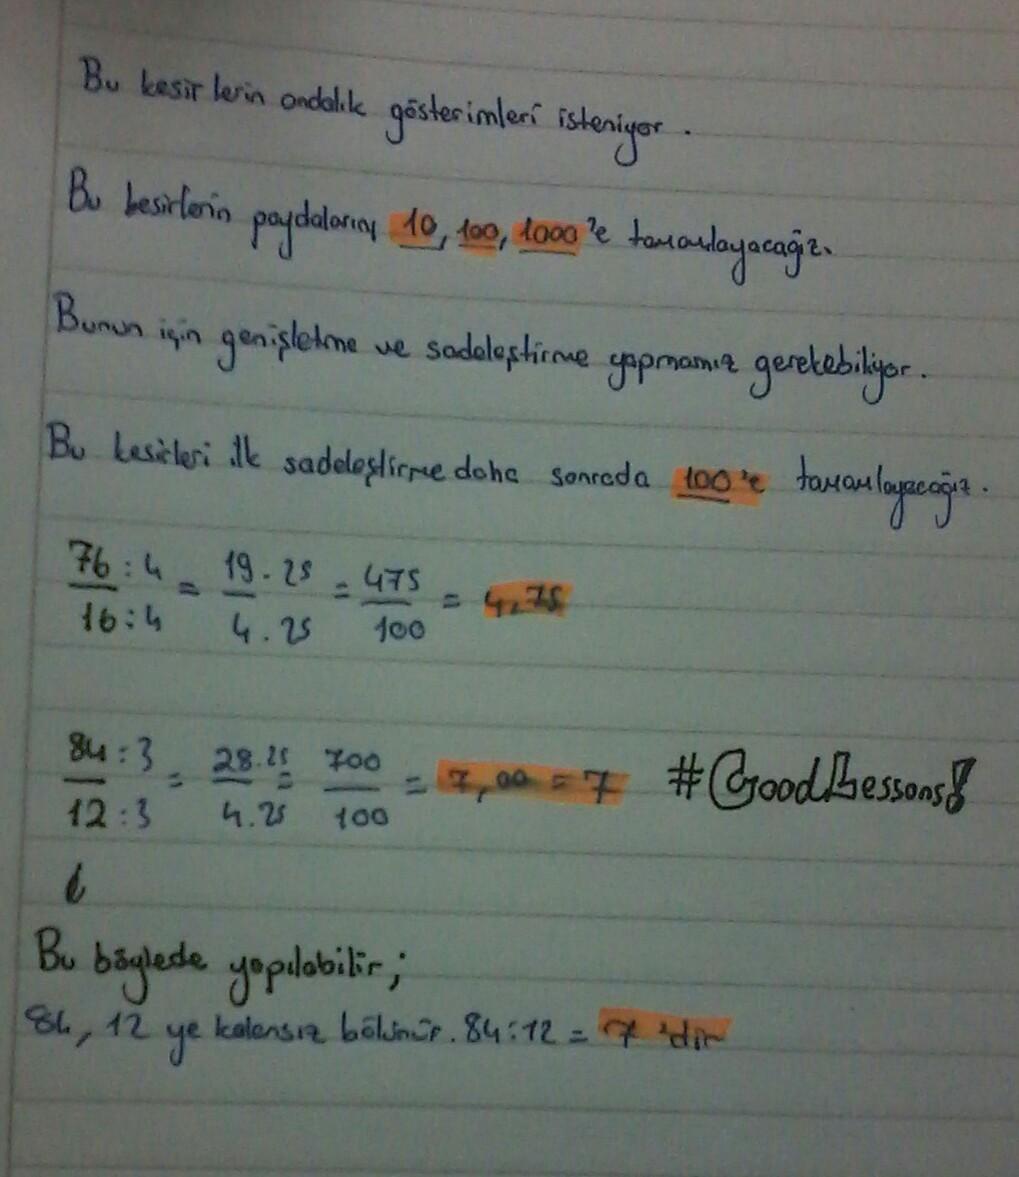 Bu kesirlerin ondalık gösterimleri isteniyor.
Bu kesirlerin paydalarını 10, 100, 1000'e tamamlayacağız.
Bunun için genişletme ve sadeleştirme yapmamız gerekebiliyor.
Bu kesirleri ilk sadeleştirme daha sonrada 100'e tamamlayacağız.
76 : 4 / 16 : 4 = 19 . 25 / 4 . 25 = 475 / 100 = 4,75
84 : 3 / 12 : 3 = 28 . 25 / 4 . 25 = 700 / 100 = 7,00 = 7 #GoodLessons!
Bu böylede yapılabilir;
84, 12 ye kalansız bölünür. 84 : 12 = 7 'dir